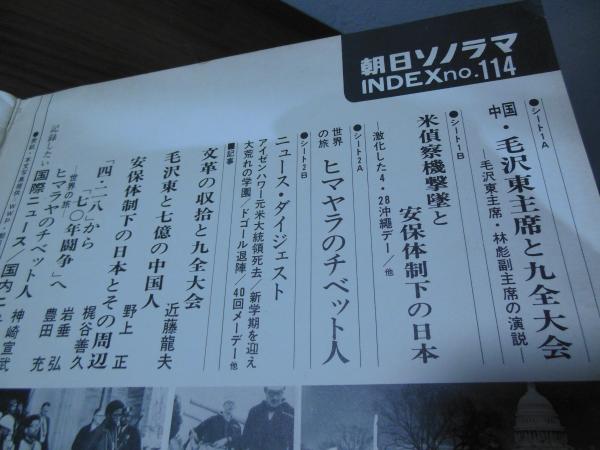 朝日ソノラマ
INDEXno.114
●シート1A
中国・毛沢東主席と九全大会
―毛沢東主席・林彪副主席の演説―
●シート1B
米偵察機撃墜と
安保体制下の日本
―激化した4・28沖縄デー/他
●シート2A
世界の旅 ヒマヤラのチベット人
●シート2B
ニュース・ダイジェスト
アイゼンハワー元米大統領死去/新学期を迎え
大荒れの学園/ドゴール退陣/40回メーデー他
■記事
文革の収拾と九全大会 近藤龍夫
毛沢東と七億の中国人 野上正
安保体制下の日本とその周辺 梶谷善久
「四・二八」から「七〇年闘争」へ 岩垂弘
―世界の旅―
ヒマヤラのチベット人 豊田充
記録したい国際ニュース/国内ニュ 神崎宣武